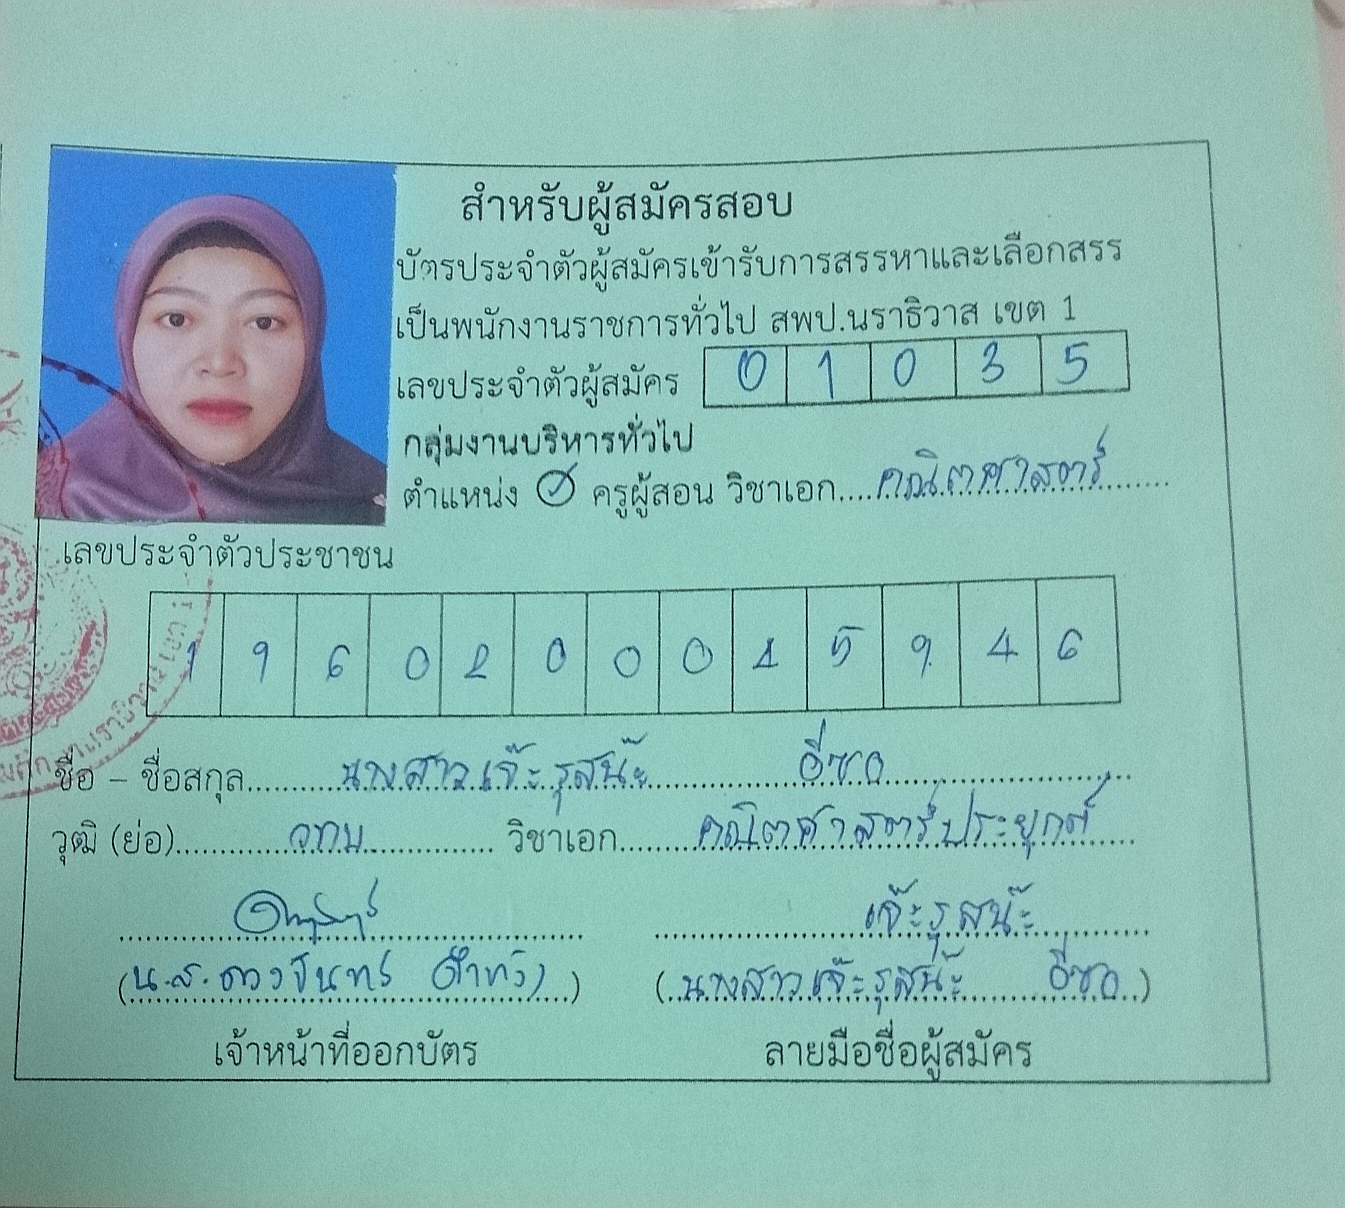 สำหรับผู้สมัครสอบ
บัตรประจำตัวผู้สมัครเข้ารับการสรรหาและเลือกสรร
เป็นพนักงานราชการทั่วไป สพป.นราธิวาส เขต 1
เลขประจำตัวผู้สมัคร 0 1 0 3 5
กลุ่มงานบริหารทั่วไป
ตำแหน่ง ครูผู้สอน วิชาเอก....คณิตศาสตร์
เลขประจำตัวประชาชน
1 9 6 0 2 0 0 0 1 5 9 4 6
ชื่อ – ชื่อสกุล นางสาวเจ๊ะรุสน๊ะ อีซอ
วุฒิ (ย่อ) วทบ วิชาเอก คณิตศาสตร์ประยุกต์
เจ๊ะรุสน๊ะ
(น.ส.ดวงจันทร์) (นางสาวเจ๊ะรุสน๊ะ อีซอ)
เจ้าหน้าที่ออกบัตร ลายมือชื่อผู้สมัคร